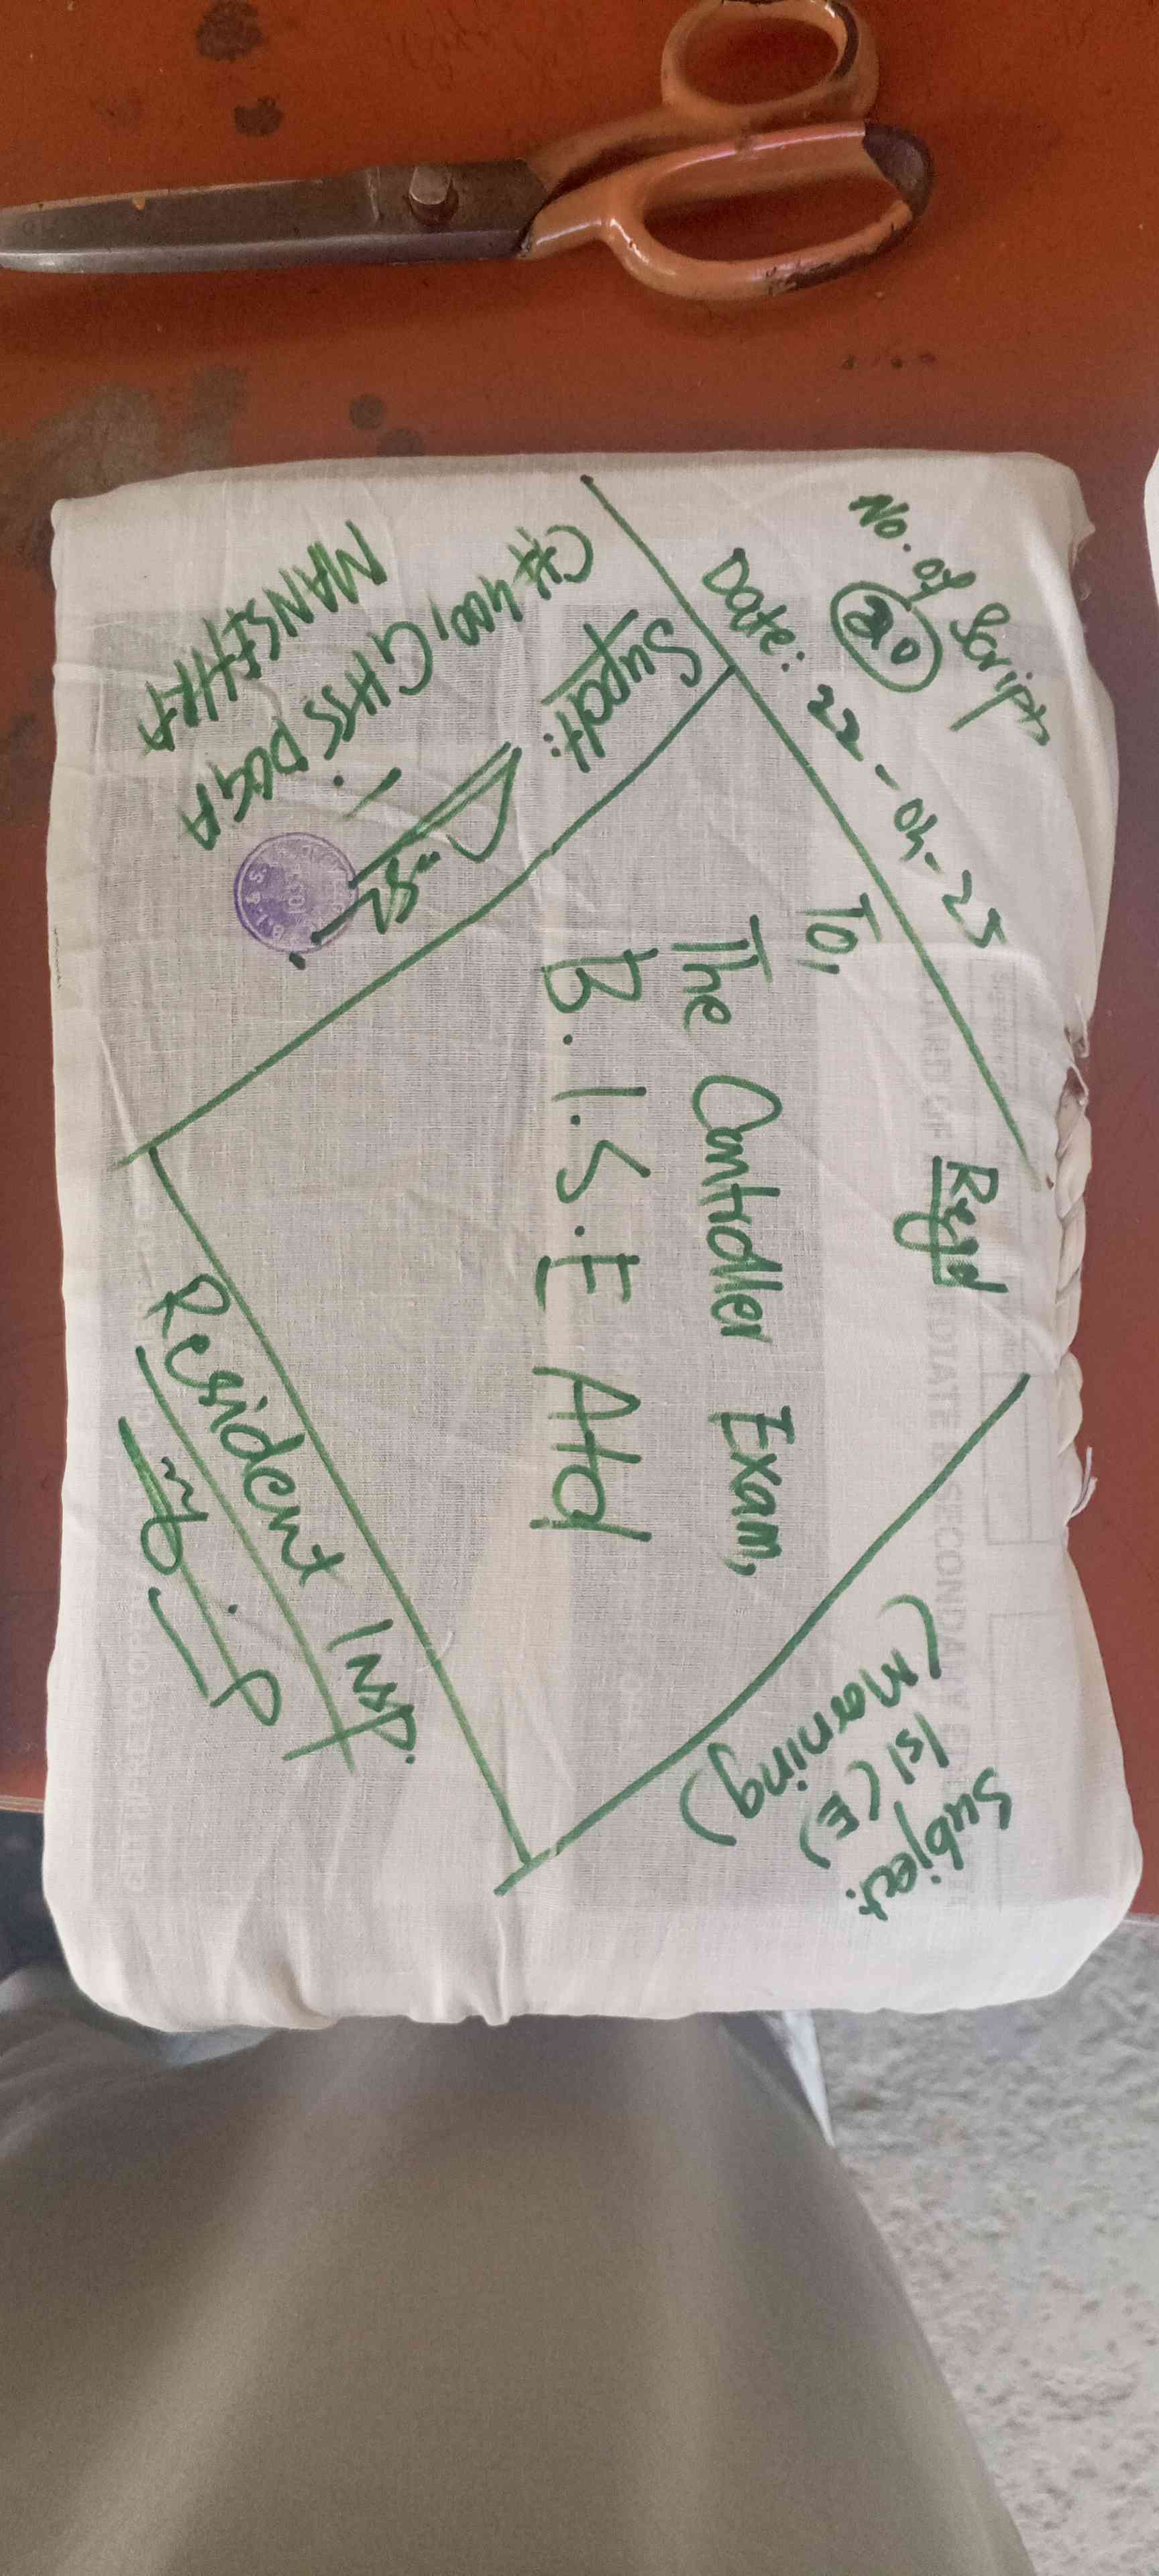 No. of Scripts
20
Date: 22-04-25
Regd
Subject.
Isl (E)
(Morning)
To,
The Controller Exam,
B.I.S.E Atd
Supdt:
C# 400, GHSS DOGA
MANSEHRA
Resident Insp.